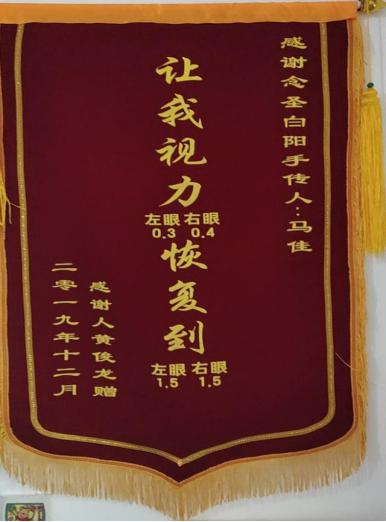 感谢念圣白阳手传人:马佳
让我视力
左眼 右眼
0.3 0.4
恢复到
左眼 右眼
1.5 1.5
感谢人黄俊龙赠
二零一九年十二月